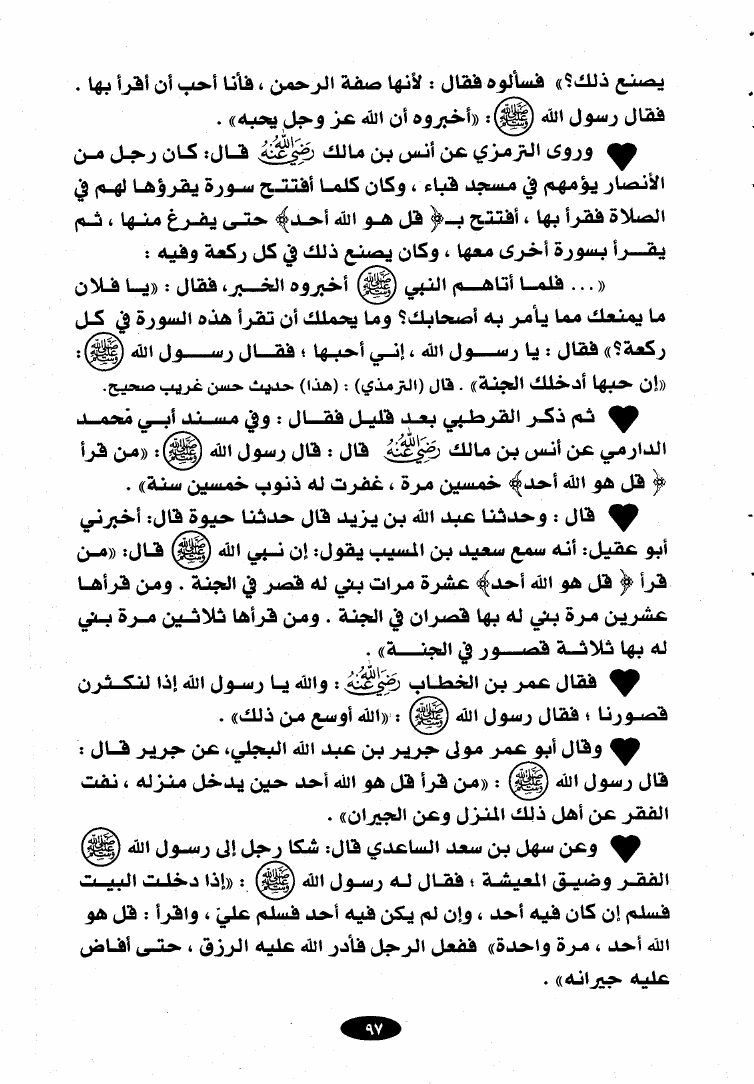 يصنع ذلك؟» فسألوه فقال : لأنها صفة الرحمن ، فأنا أحب أن أقرأ بها .
فقال رسول الله ﷺ : «أخبروه أن الله عز وجل يحبه» .
♥ وروى الترمزي عن أنس بن مالك رضي الله عنه قال: كان رجل من
الأنصار يؤمهم في مسجد قباء ، وكان كلما أفتتح سورة يقرؤها لهم في
الصلاة فقرأ بها ، أفتتح بـ﴿ قل هو الله أحد﴾ حتى يفرغ منها ، ثم
يقرأ بسورة أخرى معها ، وكان يصنع ذلك في كل ركعة وفيه :
«... فلما أتاهم النبي ﷺ أخبروه الخبر، فقال : «يا فلان
ما يمنعك مما يأمر به أصحابك؟ وما يحملك أن تقرأ هذه السورة في كل
ركعة؟» فقال : يا رسول الله ، إني أحبها ؛ فقال رسول الله ﷺ :
«إن حبها أدخلك الجنة» . قال (الترمذي) : (هذا) حديث حسن غريب صحيح.
♥ ثم ذكر القرطبي بعد قليل فقال : وفي مسند أبي مُحمد
الدارمي عن أنس بن مالك رضي الله عنه قال : قال رسول الله ﷺ : «من قرأ
﴿ قل هو الله أحد﴾ خمسين مرة ، غفرت له ذنوب خمسين سنة» .
♥ قال : وحدثنا عبد الله بن يزيد قال حدثنا حيوة قال: أخبرني
أبو عقيل: أنه سمع سعيد بن المسيب يقول: إن نبي الله ﷺ قال: «من
قرأ ﴿ قل هو الله أحد﴾ عشرة مرات بني له قصر في الجنة . ومن قرأها
عشرين مرة بني له بها قصران في الجنة . ومن قرأها ثلاثين مرة بني
له بها ثلاثة قصور في الجنة» .
♥ فقال عمر بن الخطاب رضي الله عنه : والله يا رسول الله إذا لنكثرن
قصورنا ؛ فقال رسول الله ﷺ : «الله أوسع من ذلك» .
♥ وقال أبو عمر مولى جرير بن عبد الله البجلي، عن جرير قال :
قال رسول الله ﷺ : «من قرأ قل هو الله أحد حين يدخل منزله ، نفت
الفقر عن أهل ذلك المنزل وعن الجيران» .
♥ وعن سهل بن سعد الساعدي قال: شكا رجل إلى رسول الله ﷺ
الفقر وضيق المعيشة ؛ فقال له رسول الله ﷺ : «إذا دخلت البيت
فسلم إن كان فيه أحد ، وإن لم يكن فيه أحد فسلم عليّ ، واقرأ : قل هو
الله أحد ، مرة واحدة» ففعل الرجل فأدر الله عليه الرزق ، حتى أفاض
عليه جيرانه» .
٩٧